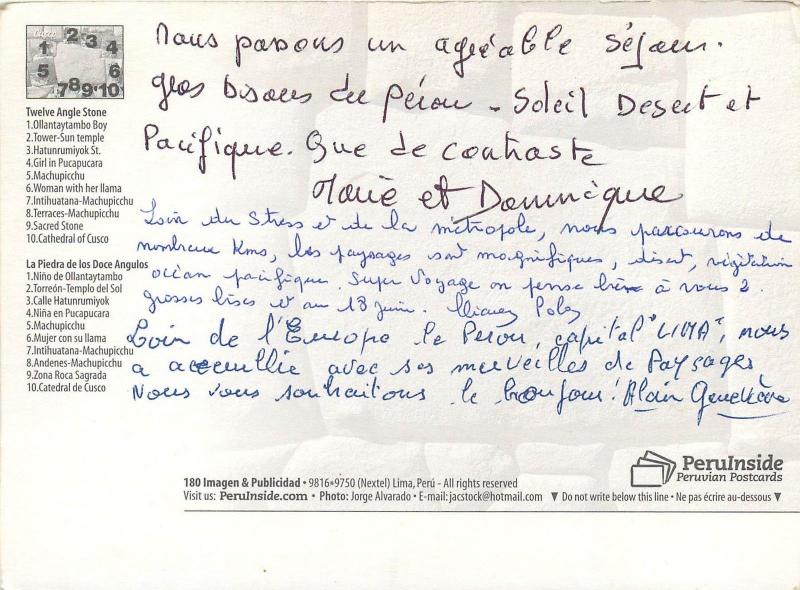 Cusco
1 2 3 4
5 6
7 8 9 10
Twelve Angle Stone
1.Ollantaytambo Boy
2.Tower-Sun temple
3.Hatunrumiyok St.
4.Girl in Pucapucara
5.Machupicchu
6.Woman with her llama
7.Intihuatana-Machupicchu
8.Terraces-Machupicchu
9.Sacred Stone
10.Cathedral of Cusco
La Piedra de los Doce Angulos
1.Niño de Ollantaytambo
2.Torreón-Templo del Sol
3.Calle Hatunrumiyok
4.Niña en Pucapucara
5.Machupicchu
6.Mujer con su llama
7.Intihuatana-Machupicchu
8.Andenes-Machupicchu
9.Zona Roca Sagrada
10.Catedral de Cusco
Nous passons un agréable séjour.
gros bisous du Pérou - Soleil Desert et
Pacifique. Que de contraste
Marie et Dominique
Loin du stress et de la métropole, nous parcourons de
nombreux Kms, les paysages sont magnifiques, désert, végétation
océan pacifique. Super Voyage on pense bien à vous 2.
grosses bises et au 13 juin.
Loin de l'Europe le Pérou, capital "LIMA", nous
a accuellie avec ses merveilles de Paysages,
Nous vous souhaitons le bonjour! Alain Geneviève
PeruInside
Peruvian Postcards
180 Imagen & Publicidad • 9816*9750 (Nextel) Lima, Perú - All rights reserved
Visit us: PeruInside.com • Photo: Jorge Alvarado • E-mail: jacstock@hotmail.com ▼ Do not write below this line • Ne pas écrire au-dessous ▼